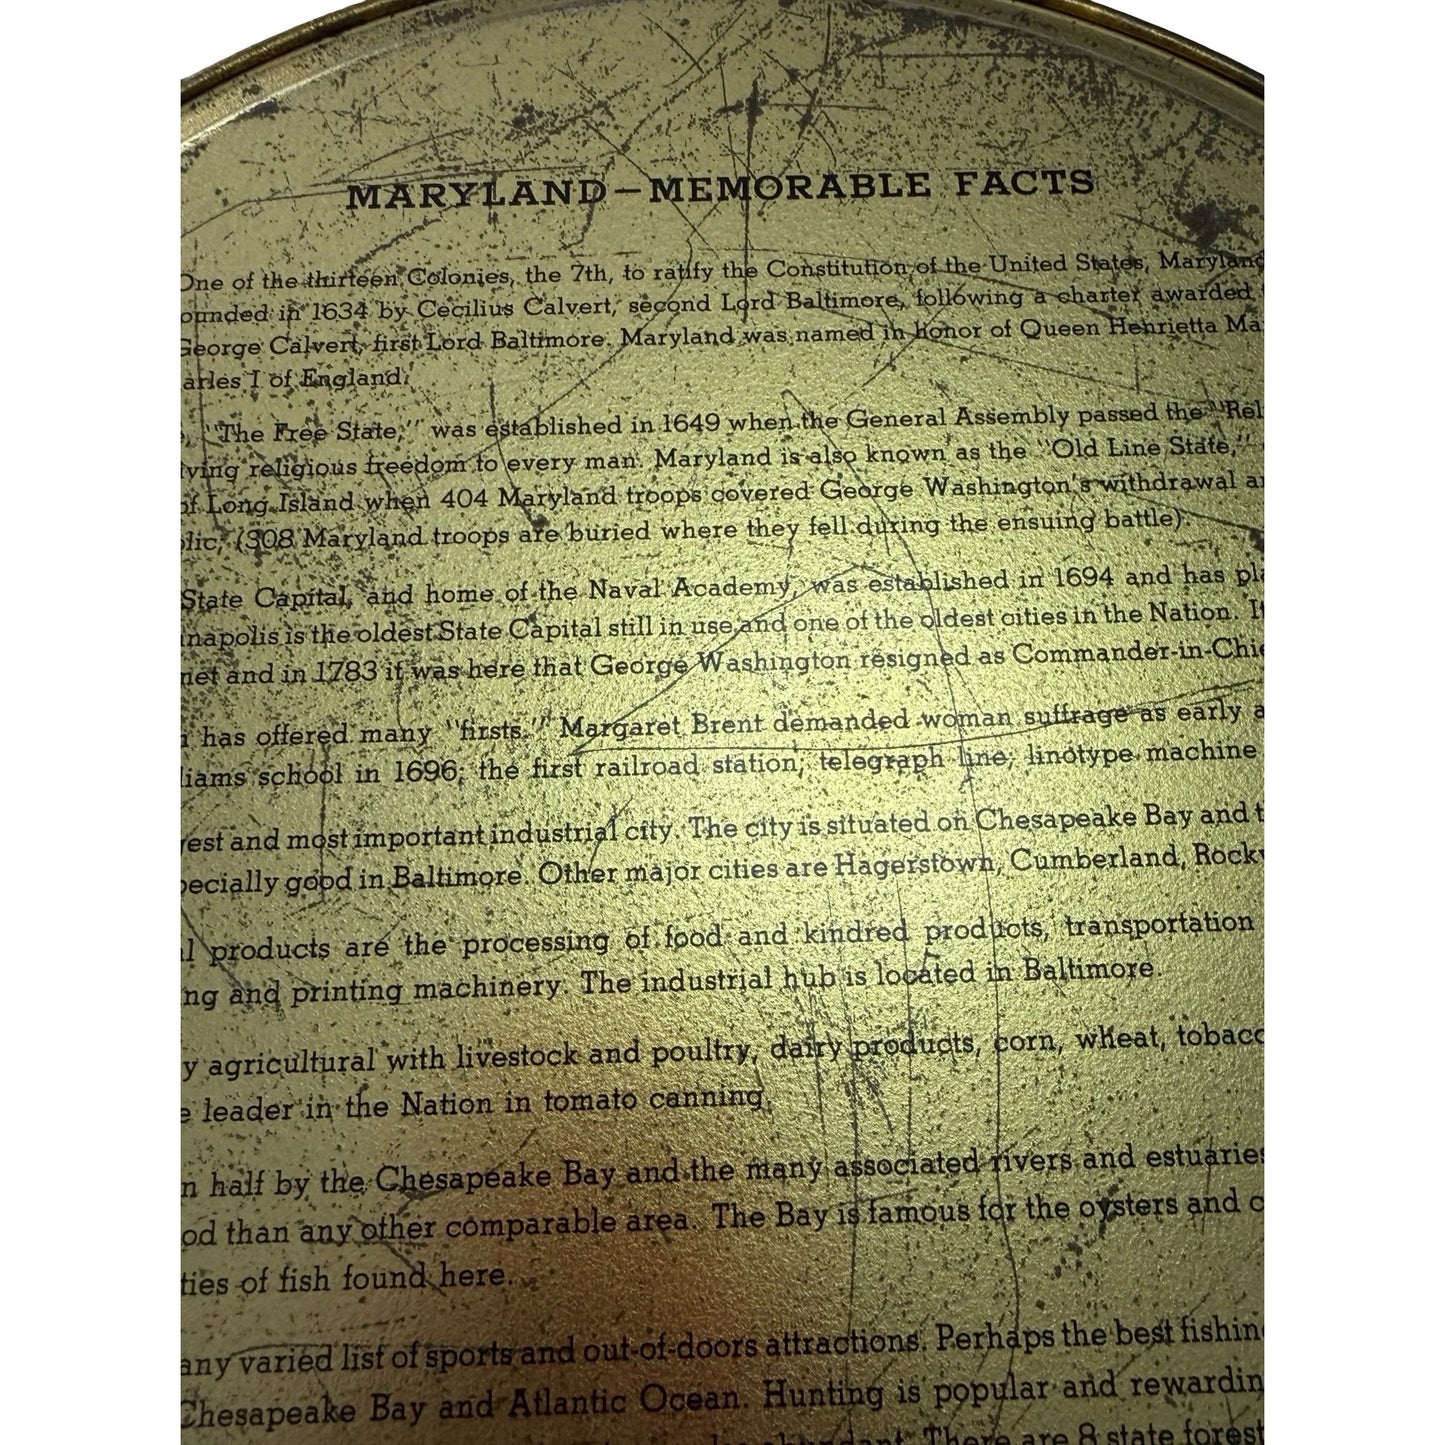 MARYLAND—MEMORABLE FACTS
One of the thirteen Colonies, the 7th, to ratify the Constitution of the United States, Maryland
ounded in 1634 by Cecilius Calvert, second Lord Baltimore, following a charter awarded
George Calvert, first Lord Baltimore. Maryland was named in honor of Queen Henrietta Ma
arles I of England.
"The Free State," was established in 1649 when the General Assembly passed the "Rel
ving religious freedom to every man. Maryland is also known as the "Old Line State,"
of Long Island when 404 Maryland troops covered George Washington's withdrawal a
lic, (308 Maryland troops are buried where they fell during the ensuing battle).
State Capital, and home of the Naval Academy, was established in 1694 and has pl
napolis is the oldest State Capital still in use and one of the oldest cities in the Nation. I
net and in 1783 it was here that George Washington resigned as Commander-in-Chi
has offered many "firsts." Margaret Brent demanded woman suffrage as early a
liams school in 1696; the first railroad station, telegraph line, linotype machine
est and most important industrial city. The city is situated on Chesapeake Bay and t
pecially good in Baltimore. Other major cities are Hagerstown, Cumberland, Rockv
l products are the processing of food and kindred products, transportation
ng and printing machinery. The industrial hub is located in Baltimore.
y agricultural with livestock and poultry, dairy products, corn, wheat, tobacc
e leader in the Nation in tomato canning.
n half by the Chesapeake Bay and the many associated rivers and estuaries
od than any other comparable area. The Bay is famous for the oysters and c
ties of fish found here.
any varied list of sports and out-of-doors attractions. Perhaps the best fishin
Chesapeake Bay and Atlantic Ocean. Hunting is popular and rewardin
There are 8 state forest